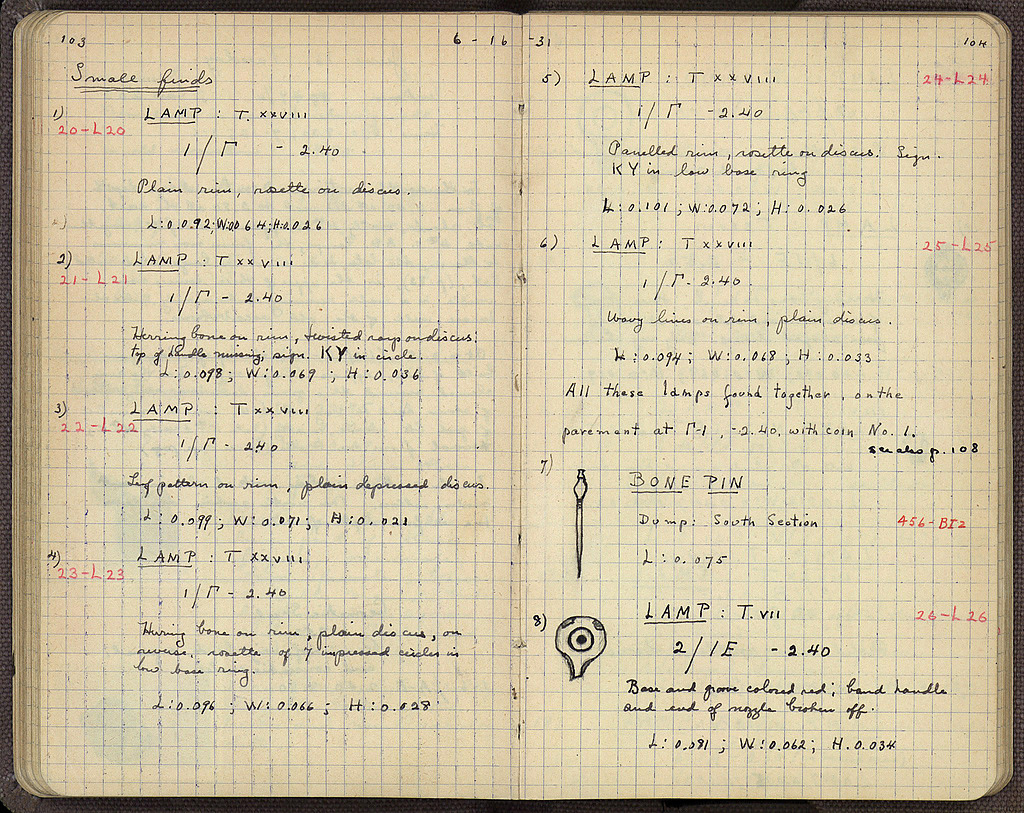 103
6 - 16 - 31
Small finds
1) LAMP : T. xxviii
20-L20
1/Γ - 2.40
Plain rim, rosette on discus.
L:0.092; W:0.064; H:0.026
2) LAMP : T xxviii
21-L21
1/Γ - 2.40
Herring bone on rim, twisted rays on discus;
top of handle missing; sign. KY in circle.
L:0.098; W:0.069; H:0.036
3) LAMP : T xxviii
22-L22
1/Γ - 2.40
Leaf pattern on rim, plain depressed discus.
L:0.099; W:0.071; H:0.021
4) LAMP : T xxviii
23-L23
1/Γ - 2.40
Herring bone on rim, plain discus, on
reverse, rosette of 7 impressed circles in
low base ring.
L:0.096; W:0.066; H:0.028
104
5) LAMP : T xxviii 24-L24
1/Γ - 2.40
Panelled rim, rosette on discus. Sign.
KY in low base ring
L:0.101; W:0.072; H:0.026
6) LAMP : T xxviii 25-L25
1/Γ - 2.40.
Wavy lines on rim, plain discus.
L:0.094; W:0.068; H:0.033
All these lamps found together, on the
pavement at Γ-1, -2.40, with coin No. 1.
see also p. 108
7) BONE PIN
Dump: South Section 456-BI2
L:0.075
8) LAMP : T. VII 26-L26
2/ΙΕ - 2.40
Base and groove colored red; band handle
and end of nozzle broken off.
L:0.081; W:0.062; H.0.034